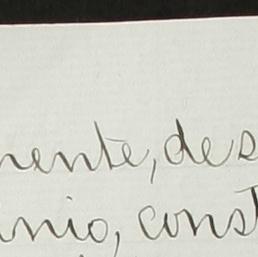 nente, des
inio, const